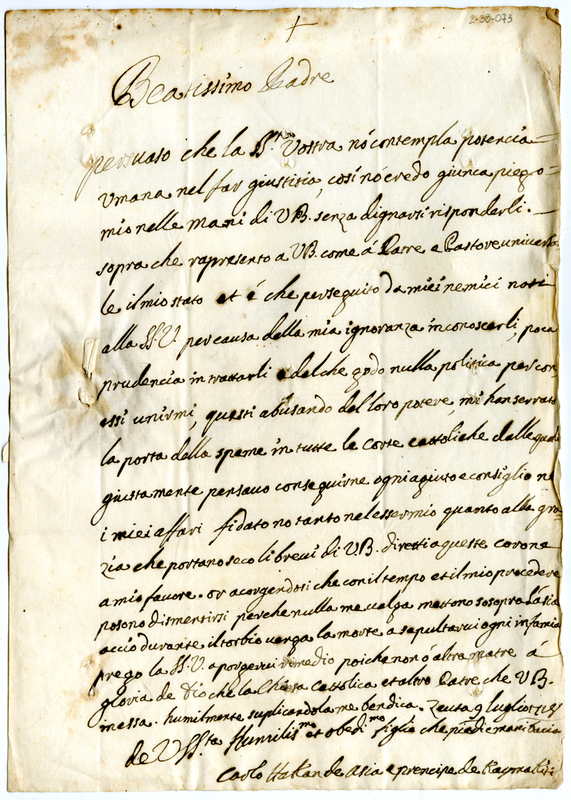 +
2-38-073
Beatissimo Padre
persuaso che la S.tà Vostra nó contempla potencia
umana nel far giustitia, cosí nó credo giunca piego
mio nelle mani di V B. senza dignarsi risponderli.
sopra che rapresento a V B. come á Patre e Pastore universa
le il mio stato et é che perseguito da miei nemici noti
alla S. V. per causa della mia ignoranza in conoscerli, poca
prudencia in trattarli e del che godo nulla politica per con
essi unirmi, questi abusando del loro potere, mi han serrato
la porta della speme in tutte le corte cattoliche dalle quali
giustamente pensavo conseguirne ogni agiuto e consiglio ne
i miei affari fidato no tanto nel esser mio quanto alla gra
zia che portano seco li brevi di V.B. diretti a queste corone
a mio favore. or acorgendosi che con il tempo et il mio procedere
posono dismentirsi perche nulla me valga mettono sosopra l'asia
acció durante il torbio venga la morte a sepultarvi ogni infamia
prego la S. V. a porgervi remedio poiche non ó altra matre a
gloria de Dio che la Chiesa Cattolica et altro Patre che V B.
in essa. humilmente suplicandola me bendica. Zeuta 9 luglio
de V. S.ta Humilis.mo et obedi.mo figlio che piedi e mani bacia
Carlo Hakan de Asia e principe de